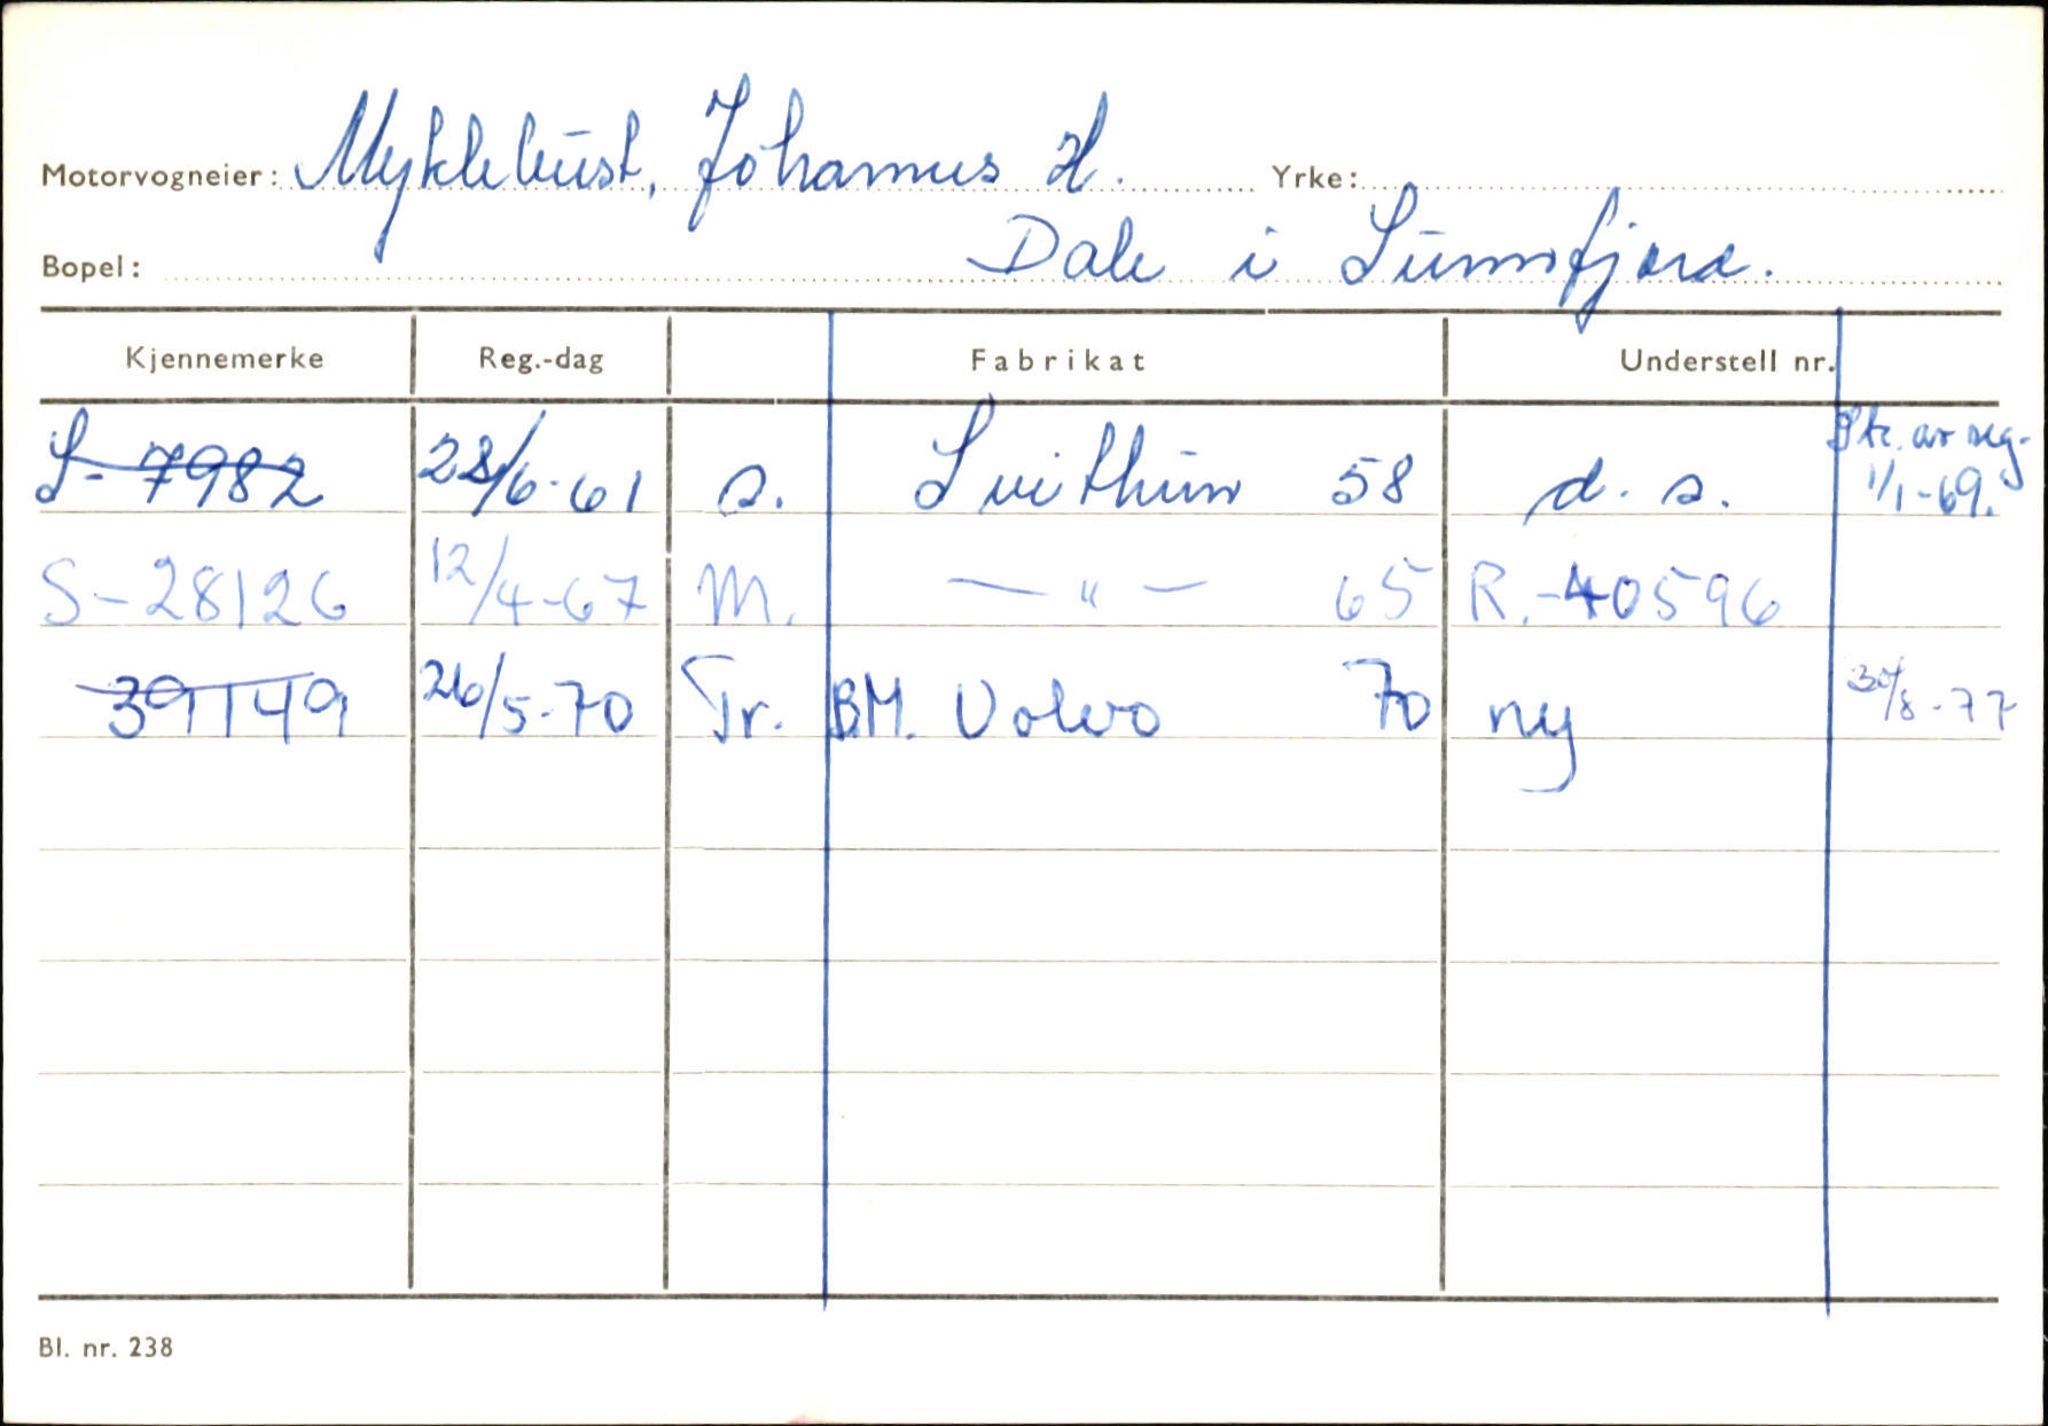 Motorvogneier: Myklebust, Johannes H. Yrke:
Bopel: Dale i Sunnfjord.
Kjennemerke Reg.-dag Fabrikat Understell nr.
S-7982 28/6-61 s. Svithun 58 d.s. Str. av reg. 1/1-69.
S-28126 12/4-67 M. —"— 65 R.-40596
39149 26/5-70 Tr. BM. Volvo 70 ny 30/8-77
Bl. nr. 238